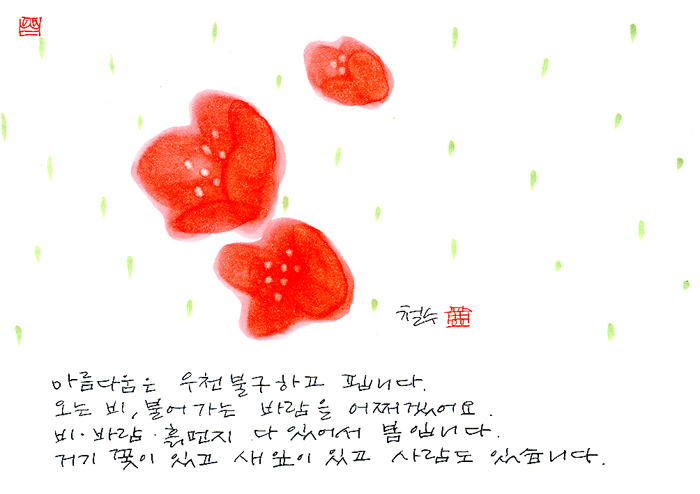 철수
아름다움은 우천불구하고 핍니다.
오는 비, 불어가는 바람을 어쩌겠어요.
비·바람·흙먼지 다 있어서 봄입니다.
거기 꽃이 있고 새 잎이 있고 사람도 있습니다.